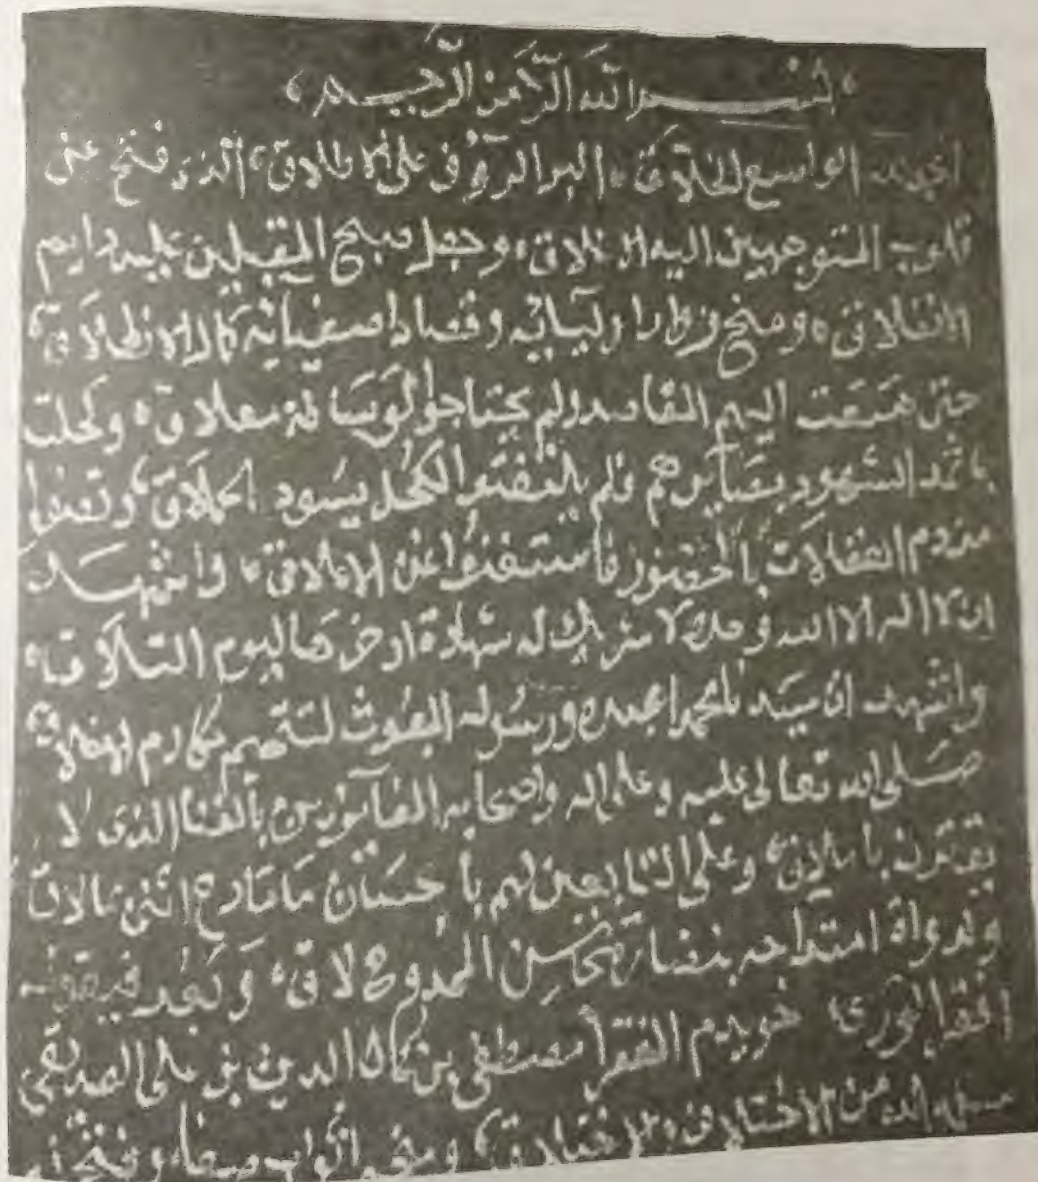 بسم الله الرحمن الرحيم
الحمد لله الواسع الخلاق البر الرؤف على الاطلاق الذي فتح عن
قلوب المتوجهين اليه الاغلاق وجعل صبح المقبلين عليه دايم
الانفلاق ومنح اوليائه وقصاد اصفيائه كمال الانطلاق
حتى اليهم المقاصد ولم يحتاجوا وكحلت
باثمد الشهود بصايرهم فلم يلتفتوا لكحل يسود الحملاق
من دم الغفلات بالحضور فاستغنوا عن واشهد
ان لا اله الا الله وحده لا شريك له شهادة ادخرها ليوم التلاق
واشهد ان سيدنا محمدا عبده ورسوله المبعوث لتتميم مكارم الاخلاق
صلى الله تعالى عليه وعلى اله واصحابه الفايزين بالغنا الذي لا
يقترن باملاق وعلى التابعين لهم باحسان ما
امتداحه المدوح لاق وبعد فيقول
افقر الورى خويدم الفقرا مصطفى بن كمال الدين بن على الصديقي
من الاختلاق اثواب صفا